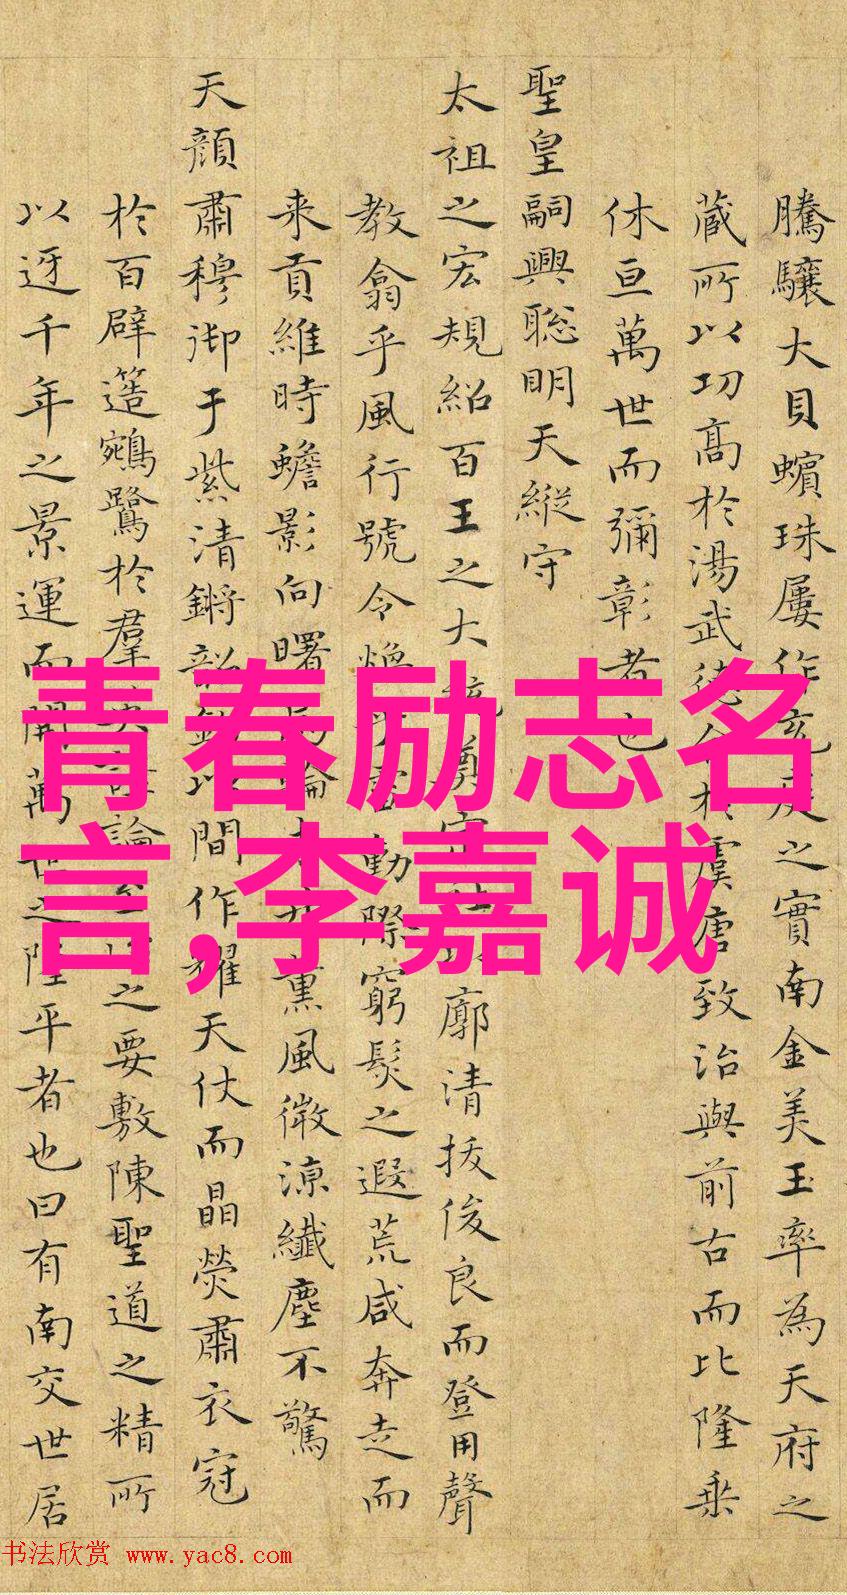 騰驤大貝蠙珠屢作充庭之實南金美玉率為天府之
藏所以功高於湯武德於虞唐致治與前古而比隆乗
休亘萬世而彌彰者也
聖皇嗣興聡明天縦守
太祖之宏規紹百王之大廓清抜俊良而登用聲
教翕乎風行號令動際窮髮之遐荒咸奔走而
来貢維時蟾影向曙薰風微涼纖塵不驚
天顔肅穆御于紫清鏘韶以間作耀天仗而晶熒肅衣冠
於百辟簉鵷鷺於羣論之要敷陳聖道之精所
以迓千年之景運而開萬世之隆平者也曰有南交世居
青春励志名
言,李嘉诚
书法欣赏 www.yac8.com